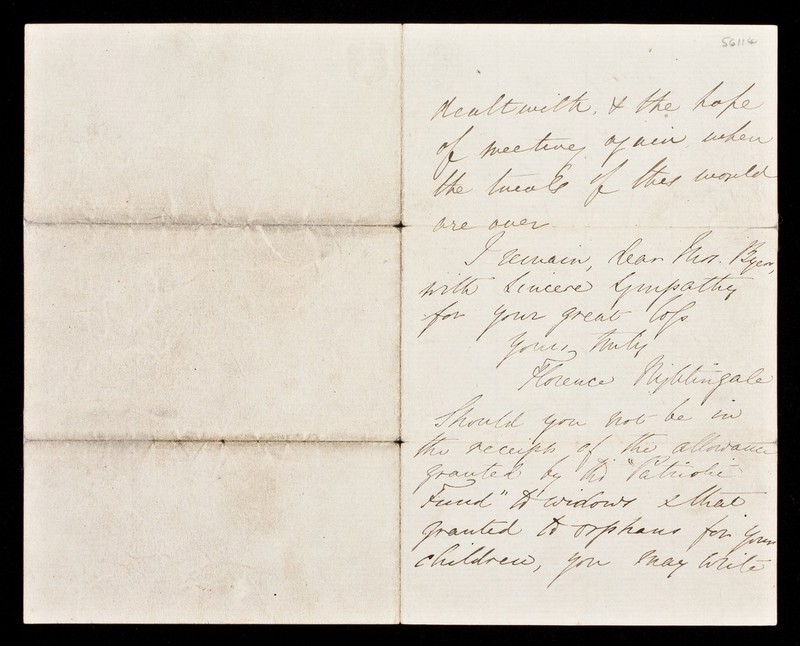 56114
dealt with, & the hope
of meeting again when
the trials of this world
are over
I remain, dear Mrs. Byers,
with sincere sympathy
for your great loss
yours truly
Florence Nightingale
Should you not be in
the receipt of the allowance
granted by the "Patriotic
Fund" to widows & that
granted to orphans for your
children, you may write